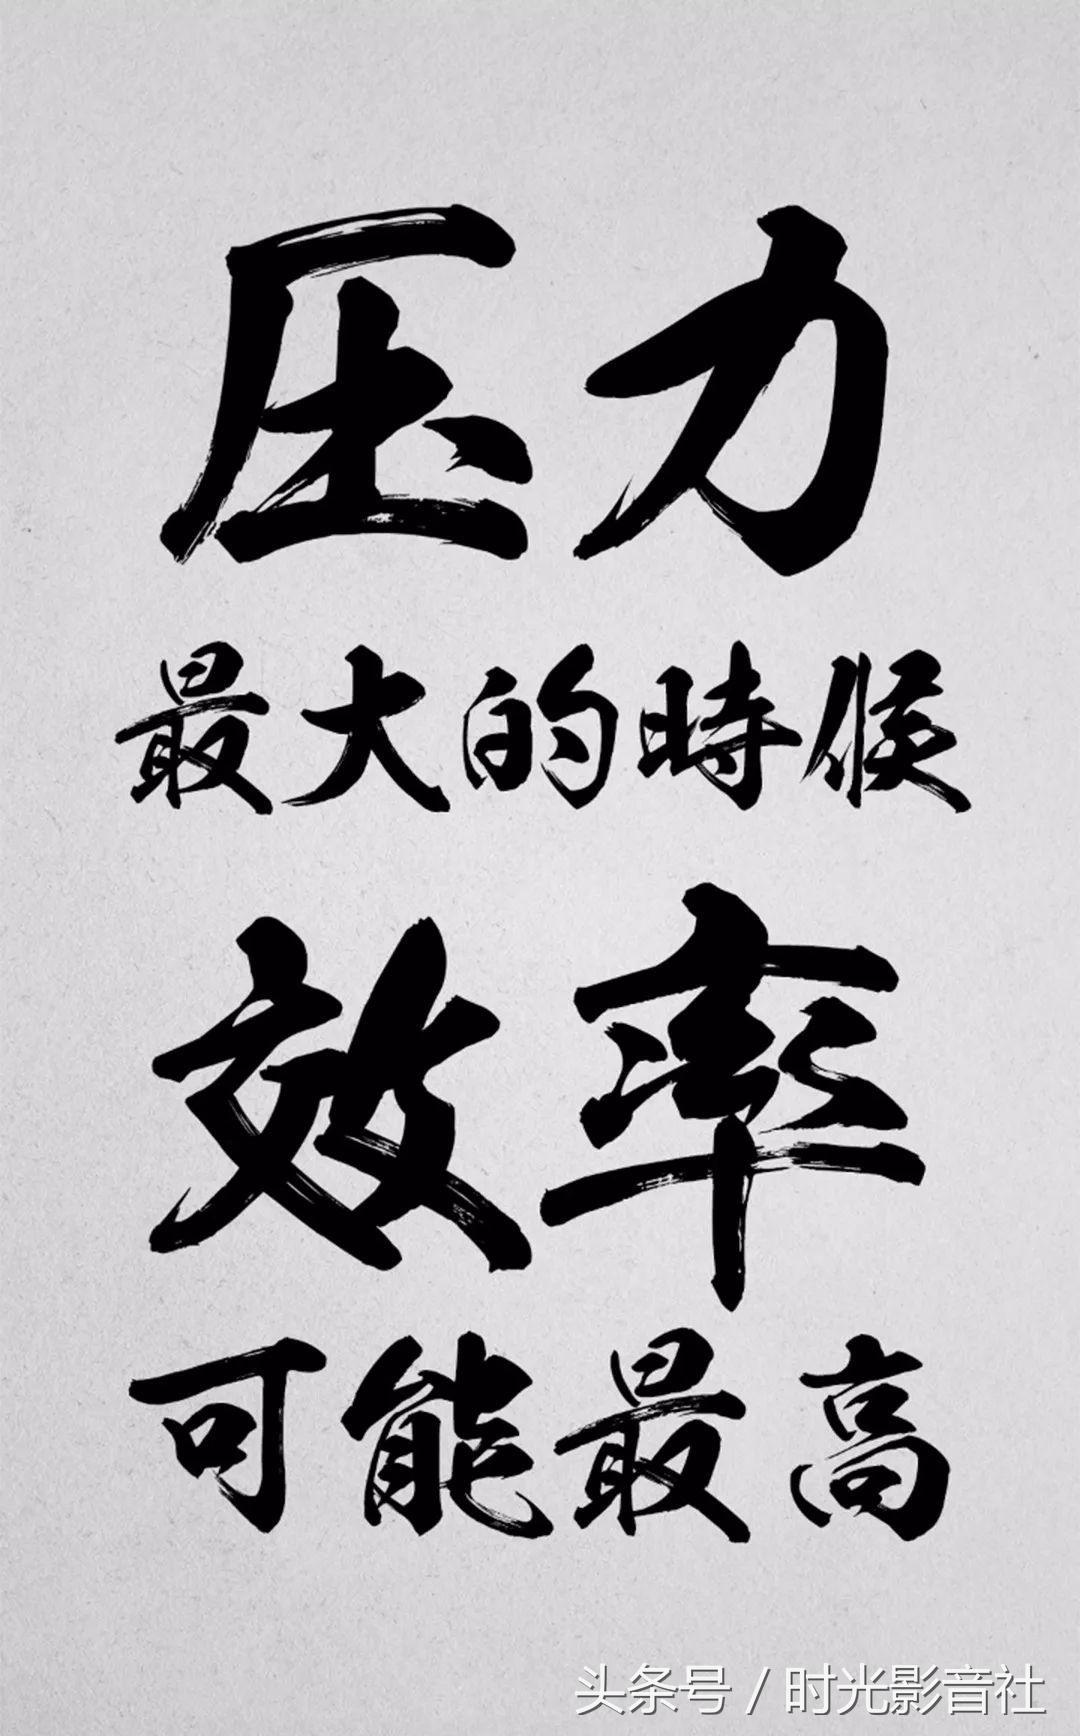 压力
最大的時候
效率
可能最高
头条号 / 时光影音社